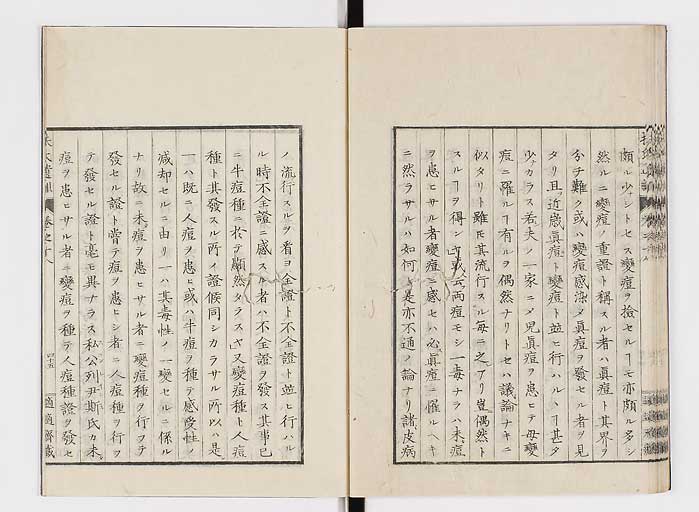 頗ル少ナシトセス變痘ヲ撿セルヿモ亦頗ル多シ
然ルニ變痘ノ重證ト稱スル者ハ眞痘ト其界ヲ
分チ難ク或ハ變痘感染〆眞痘ヲ發セル者ヲ見
タリ且近歳眞痘ト變痘ト並ヒ行ハルヽヿ甚タ
少ナカラス若夫ノ一家ニ〆兒眞痘ヲ患ヒテ母變
痘ニ罹ルヿ有ルヲ偶然ナリトセハ議論ナキニ
似タリト雖𪜈其流行スル毎ニ之アリ豈偶然ト
スルヿヲ得ン乎或云両痘モシ一毒ナラハ未痘
ヲ患ヒサル者變痘ニ感セハ必眞痘ニ罹ルヘキ
ニ然ラサルハ如何ト是亦不通ノ論ナリ諸皮病
ノ流行スルヲ看ヨ全證ト不全證ト並ヒ行ハル
ル時不全證ニ感スル者ハ不全證ヲ發ス其事已
ニ牛痘種ニ於テ顯然タラスヤ又變痘種ト人痘
種ト其發スル所ノ證候同シカラサル所以ハ是
一ハ既ニ人痘ヲ患ヒ或ハ牛痘ヲ種テ感受性ノ
减却セルニ由リ一ハ其毒性ノ一變セルニ係ル
ナリ故ニ未痘ヲ患ヒサル者ニ變痘種ヲ行フテ
發セル證ト嘗テ痘ヲ患ヒシ者ニ人痘種ヲ行フ
テ發セル證ト毫モ異ナラス私公列尹斯氏カ未
痘ヲ患ヒサル者ニ變痘ヲ種テ人痘種證ヲ發セ
卷之十八
四十五
適適齋藏